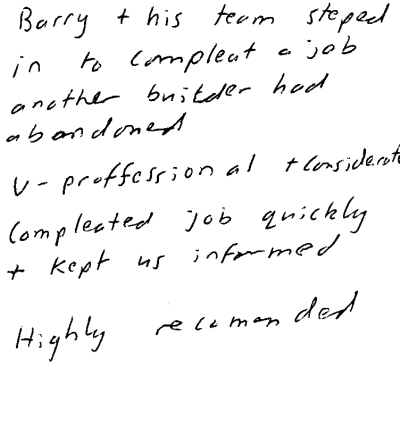 Barry + his team steped
in to compleat a job
another builder had
abandoned
V - proffessional + considerate
Compleated job quickly
+ kept us informed
Highly recomanded